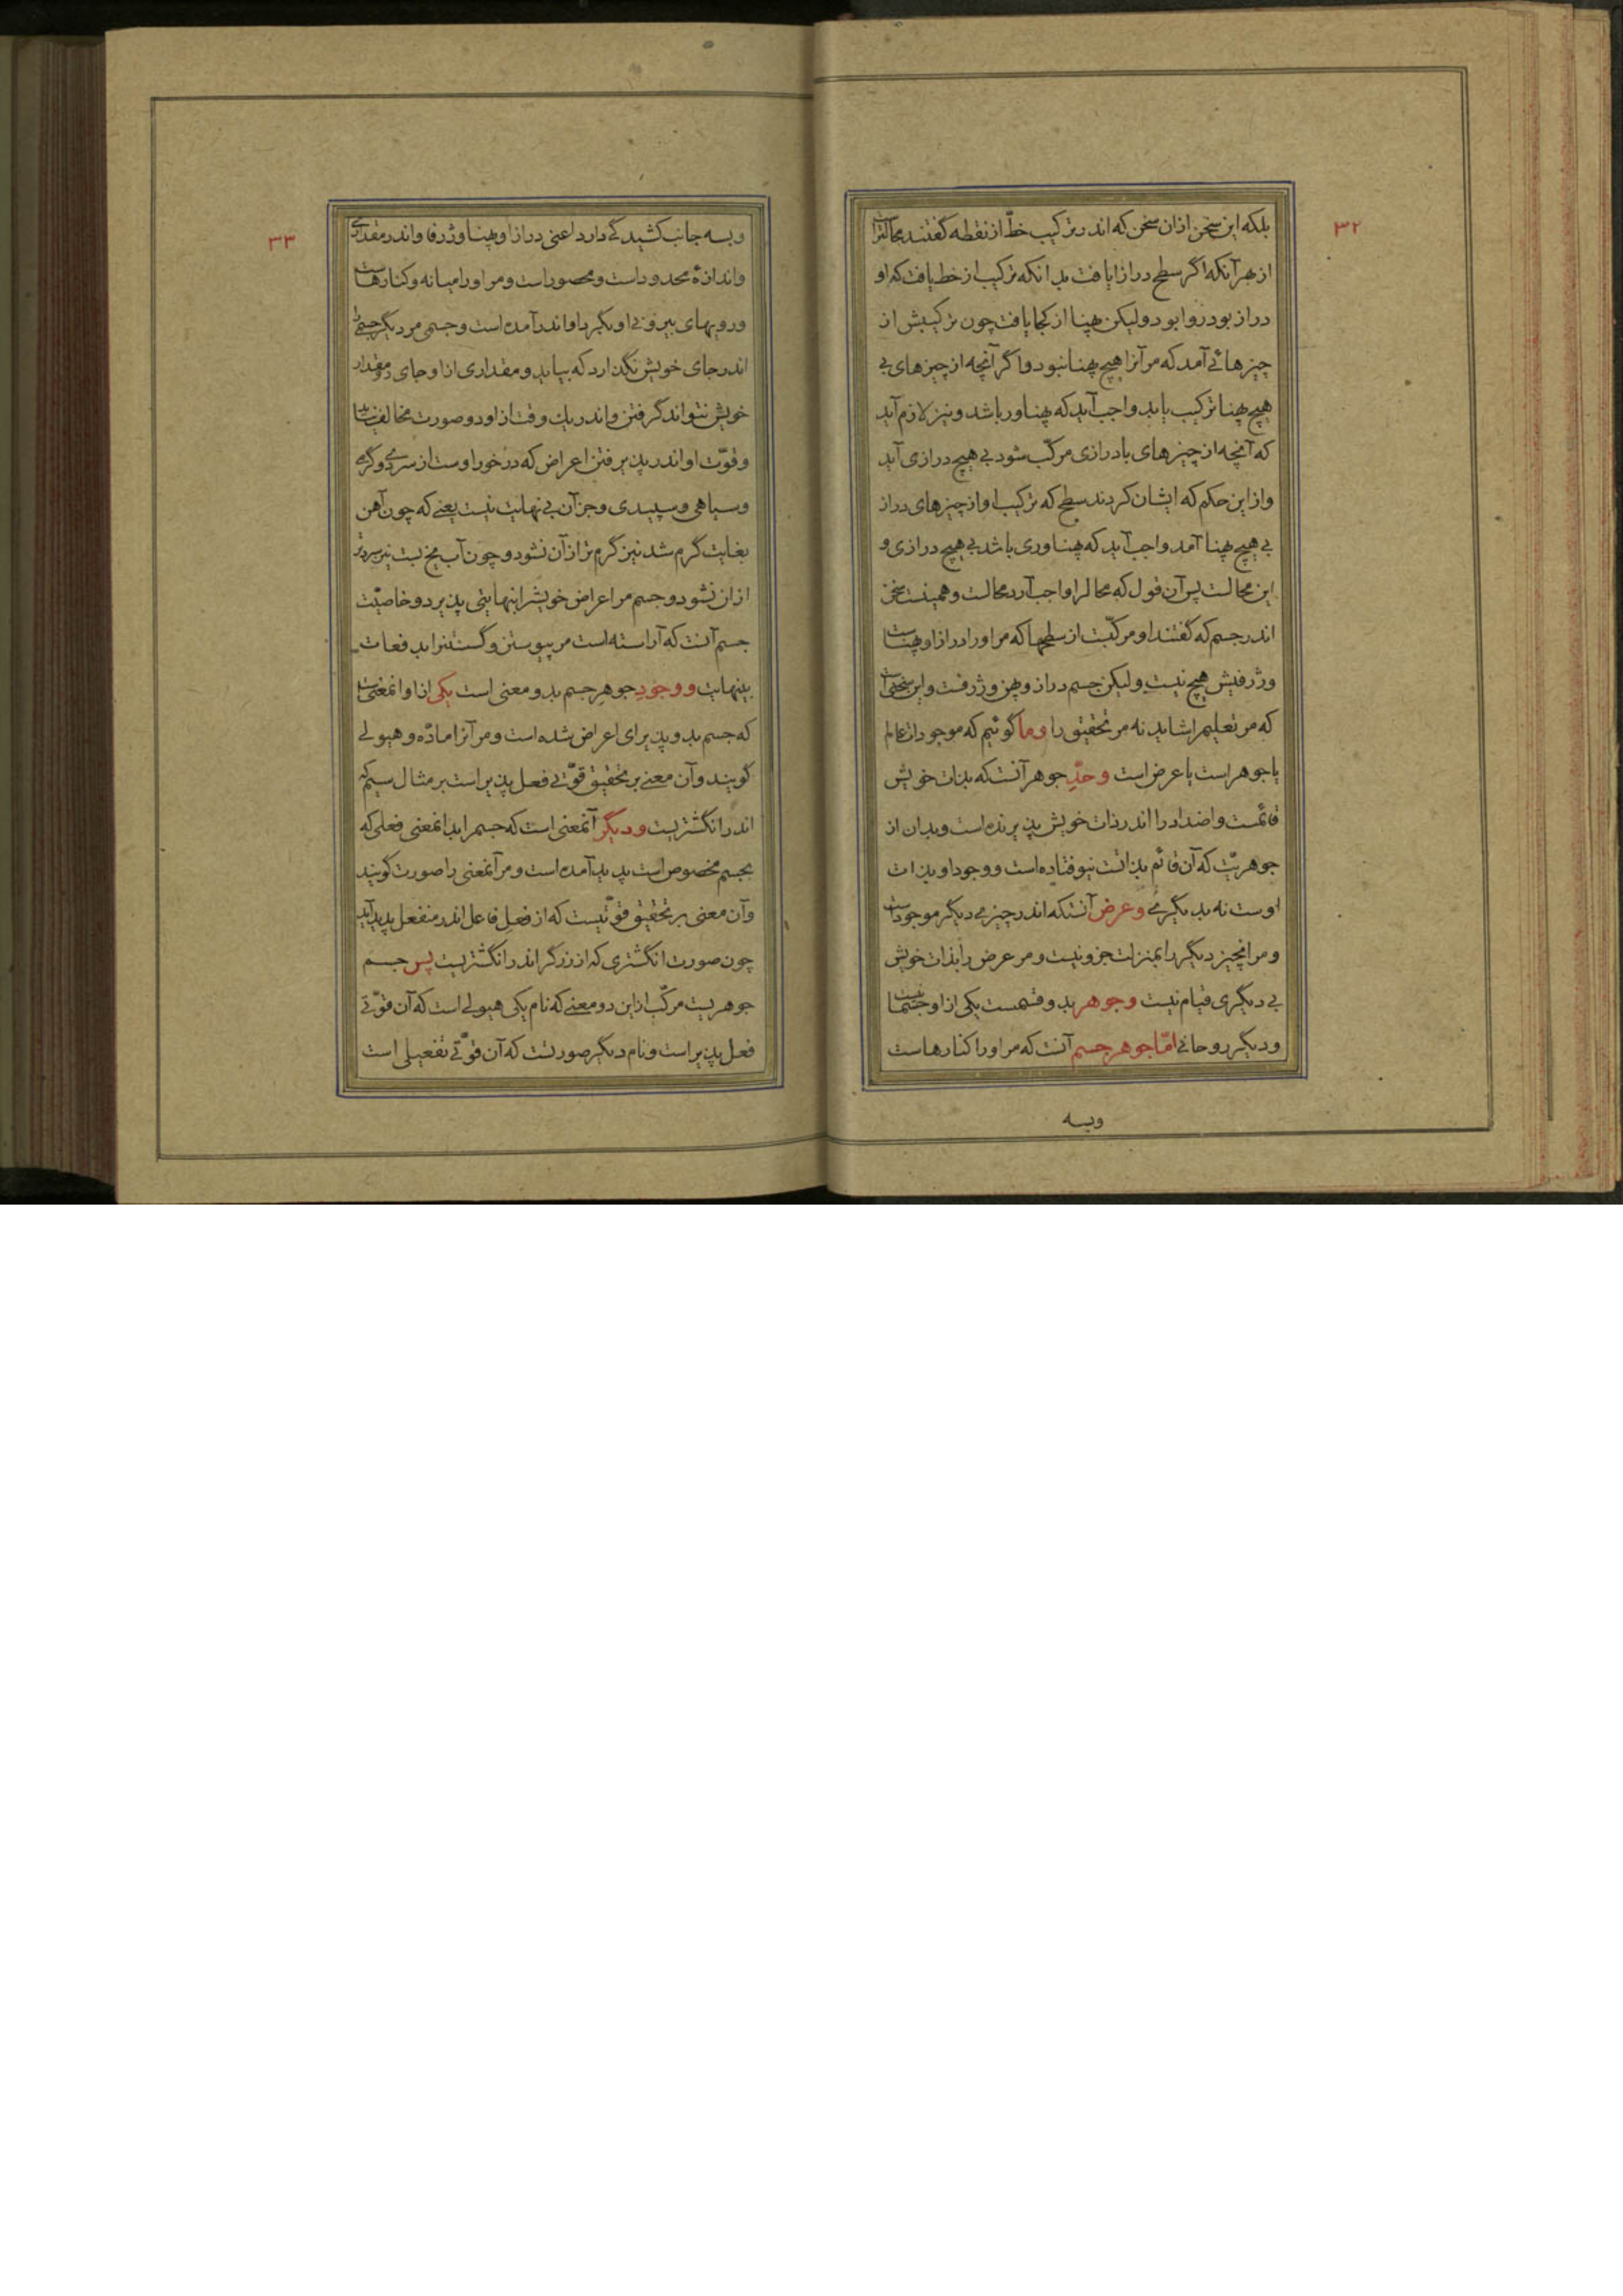 ۳۲
بلکه این سخن ازان سخن که اندر ترکیب خطّ از نقطه گفتند محالتر است
از بهر آنکه اگر سطح درازا یافت بدانکه ترکیب از خط یافت که او
دراز بود روا بود ولیکن پهنا از کجا یافت چون ترکیبش از
چیزهائی آمد که مر آنرا هیچ پهنا نبود و اگر آنچه از چیزهای بی
هیچ پهنا ترکیب یابد واجب آید که پهناور باشد و نیز لازم آید
که آنچه از چیزهای با درازی مرکّب شود بی هیچ درازی آید
و از این حکم که ایشان کردند سطح که ترکیب او از چیزهای دراز
بی هیچ پهنا آمد واجب آید که پهناوری باشد بی هیچ درازی و
این محالست پس آن قول که محالرا واجب آرد محالست و همینست سخن
اندر جسم که گفتند او مرکبّست از سطحها که مر اورا درازا و پهناست
و ژرفیش هیچ نیست ولیکن جسم دراز و پهن و ژرفست و این سخنی است
که مر تعلیم را شاید نه مر تحقیق را وما گوئیم که موجودات عالم
یا جوهر است یا عرض است وحدّ جوهر آنست که بذات خویش
قائمست و اضداد را اندر ذات خویش پذیرنده است و بدان از
جوهریّت که آن قائم بذاتست نیوفتاده است و وجود او بذات
اوست نه بدیگری وعرض آنستکه اندر چیزی دیگر موجود است
و مر انچیز دیگر را بمنزلت جزو نیست و مر عرض را بذات خویش
بی دیگری قیام نیست وجوهر بدو قسمست یکی ازو جسمانیست
و دیگر روحانی امّا جوهر جسم آنست که مر اورا کنارهاست
وبسه
۳۳
وبسه جانب کشیدگی دارد اعنی درازا و پهنا و ژرفا و اندر مقداری
و اندازهٔ محدود است و محصور است و مر اورا میانه و کنارهاست
و رویهای بیرونی او بگرد او اندر آمده است و جسمی مر دیگر جسمی را
اندر جای خویش نگذارد که بیاید و مقداری ازا و جای دو مقدار
خویش نتواند گرفتن و اندر یک وقت ازاو دو صورت مخالف نیاید
و قوّت او اندر پذیرفتن اعراض که در خور اوست از سردی و گرمی
و سیاهی و سپیدی و جز آن بی نهایت نیست یعنی که چون آهن
بغایت گرم شد نیز گرم تر از آن نشود و چون آب یخ بست نیز سردتر
ازان نشود و جسم مر اعراض خویش را بنهایتی پذیرد و خاصیّت
جسم آنست که آراسته است مر پیوستن و گسستن را بدفعات
بینهایت ووجود جوهر جسم بدو معنی است یکی ازا و انمعنی است
که جسم بدو پذیرای اعراض شده است و مر آنرا مادّه و هیولی
گویند و آن معنی بر تحقیق قوّتی فعل پذیر است بر مثال سیم که
اندر انگشتریست ودیگر آنمعنی است که جسم را بدانمعنی فعلی که
بجسم مخصوص است پدید آمده است و مر آنمعنی را صورت گویند
و آن معنی بر تحقیق قوّتیست که از فعل فاعل اندر منفعل پدید آید
چون صورت انگشتری که از زرگر اندر انگشتریست پس جسم
جوهریست مرکّب از این دو معنی که نام یکی هیولی است که آن قوّتی
فعل پذیر است و نام دیگر صورتست که آن قوّتی تفعیلی است